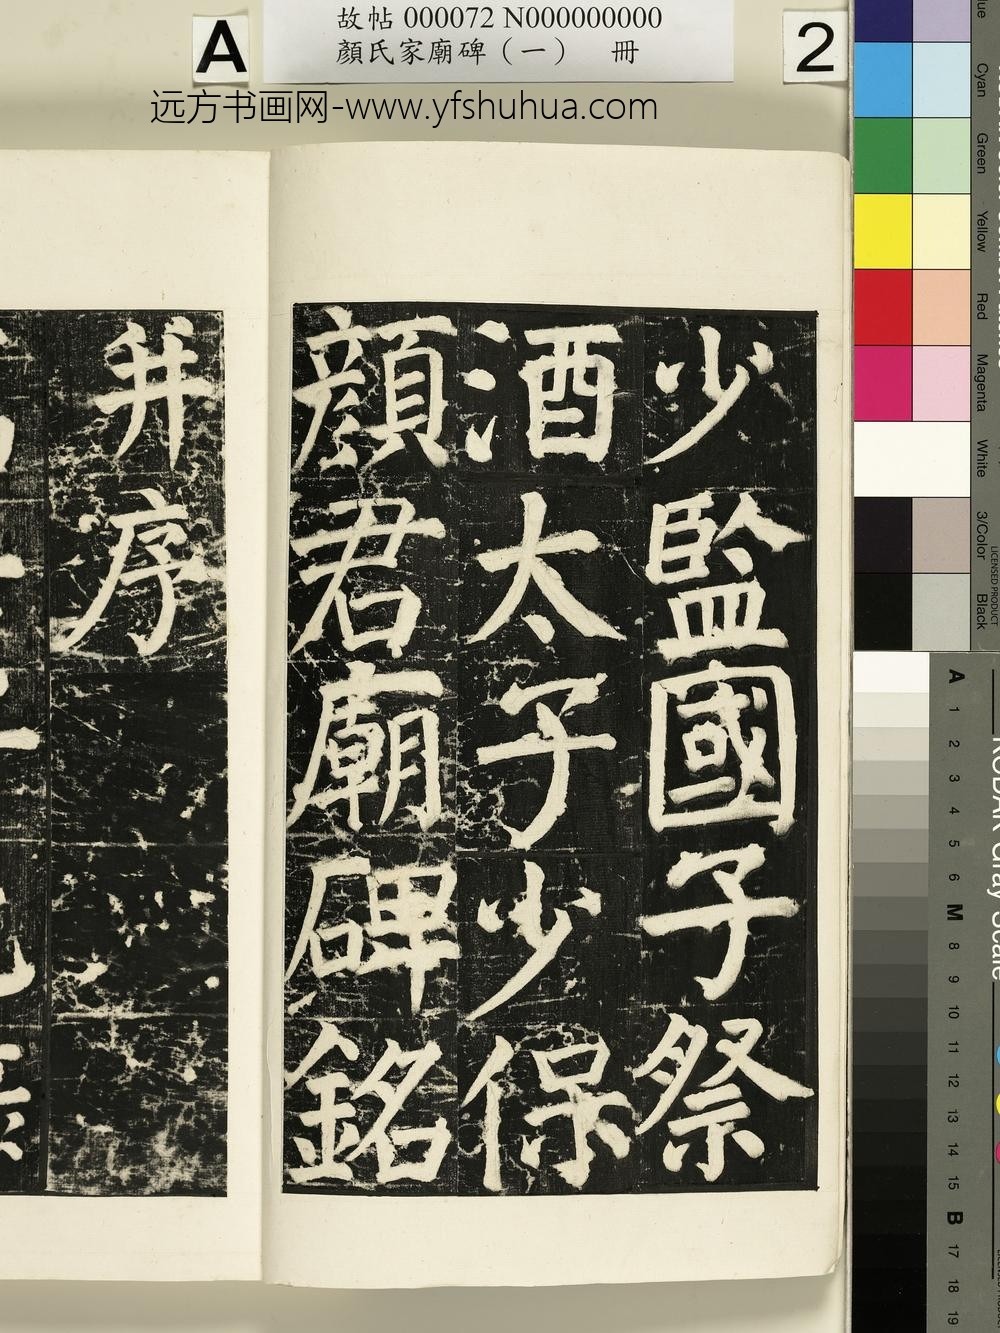 故帖 000072 N000000000
顏氏家廟碑（一） 冊
A
2
远方书画网-www.yfshuhua.com
少監國子祭
酒太子少保
顏君廟碑銘
并序
Cyan
Green
Yellow
Red
Magenta
White
3/Color
Black
LICENSED PRODUCT
A
1
2
3
4
5
6
M
8
9
10
11
12
13
14
15
B
17
18
19